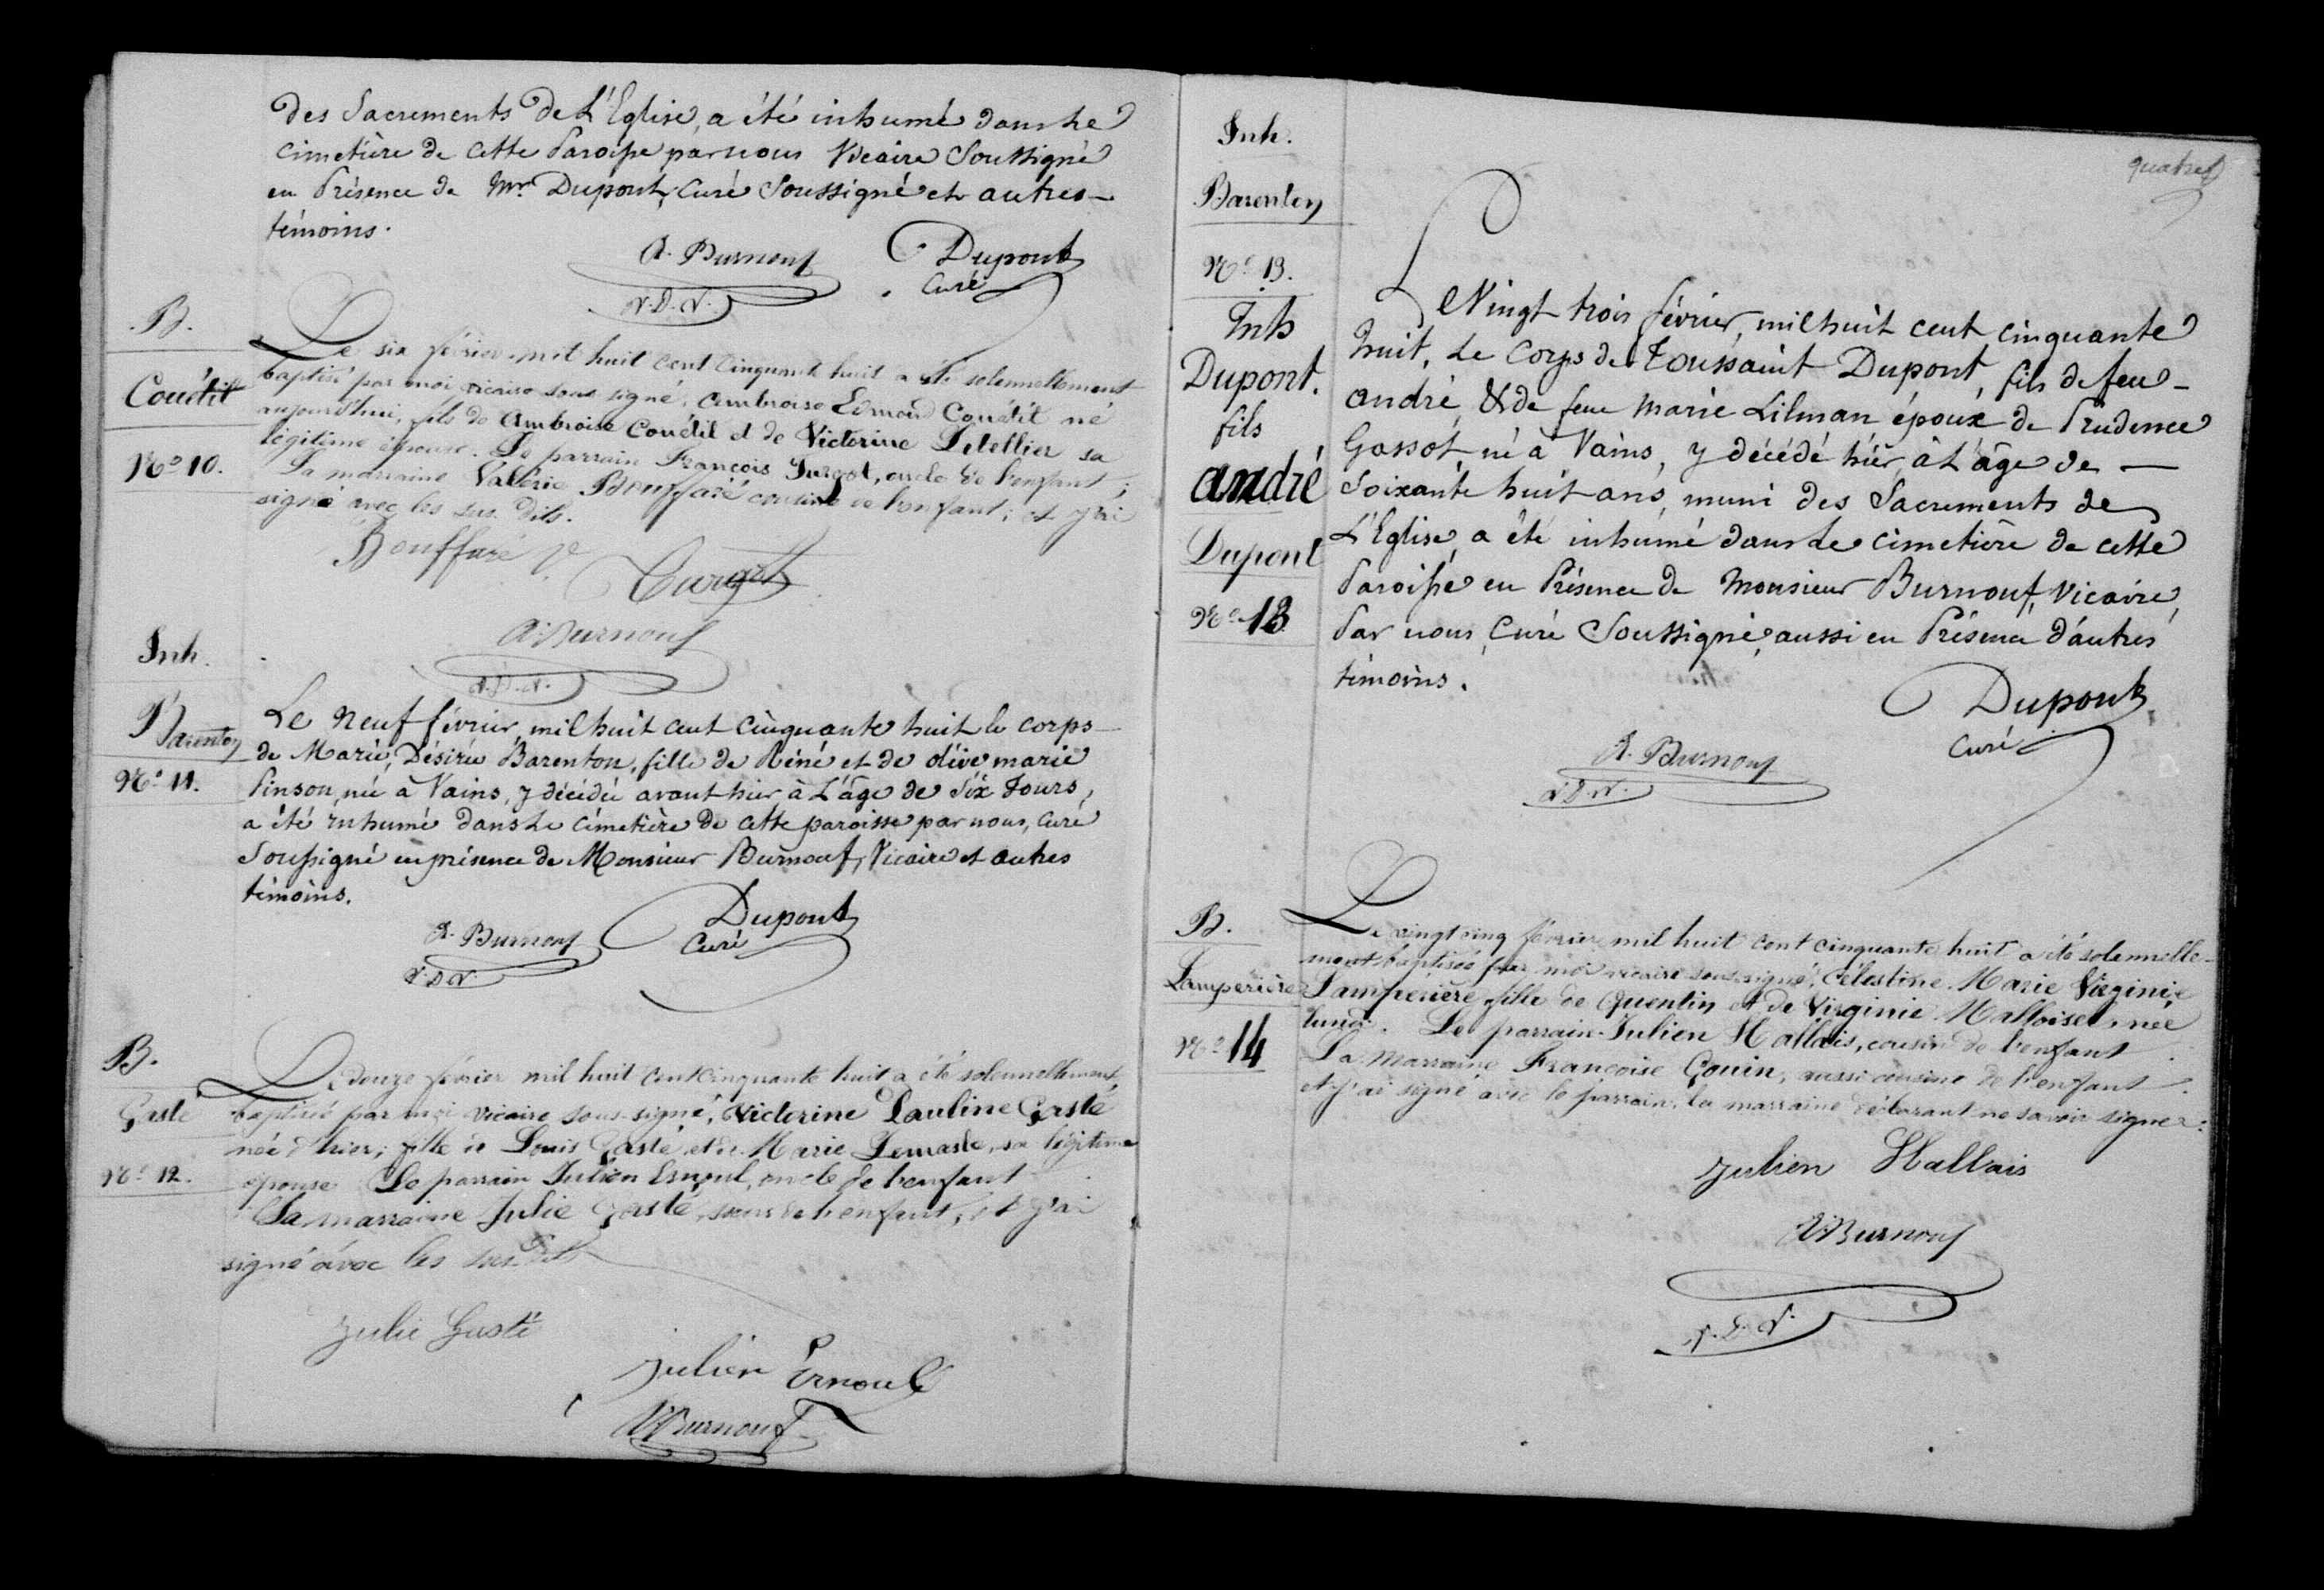 des Sacrements de L'Eglise, a été inhumé dans le
cimetière de cette Paroisse par nous Vicaire Soussigné
en Présence de Mr Dupont, Curé Soussigné et autres
témoins.
A. Burnouf Dupont
Curé
V.D.V.
B.
Couétil
No 10.
Le six février mil huit cent cinquante huit a été solennellement
baptisé par moi vicaire sous signé, Ambroise Edmond Couétil né
aujourd'hui, fils de Ambroise Couétil et de Victorine Letellier sa
légitime épouse. Le parrain François Turgot, oncle de l'enfant ;
La marraine Valérie Bouffaré cousine de l'enfant ; et j'ai
signé avec les sus dits.
Bouffaré V.
Turgot
A. Burnouf
V.D.V.
Inh.
Barenton
No 11.
Le neuf février, mil huit cent cinquante huit le corps
de Marie, Désirée Barenton, fille de Réné et de olive marie
Pinson, née à Vains, y décédée avant hier à L'âge de Six Jours,
a été inhumé dans Le cimetière de cette paroisse par nous, Curé
Soussigné en présence de Monsieur Burnouf, Vicaire et autres
témoins.
A. Burnouf Dupont
Curé
V.D.V.
B.
Gasté
No 12.
Le douze février mil huit cent cinquante huit a été solennellement
baptisée par moi vicaire sous-signé, Victorine Pauline Gasté
née d'hier ; fille de Louis Gasté et de Marie Lemasle, sa légitime
épouse Le parrain Julien Esnoul, oncle de l'enfant
La marraine Julie Gasté, sœur de l'enfant, et j'ai
signé avec les sus dits
Julie Gasté
Julien Ernoult
A. Burnouf
quatre
Inh.
Barenton
No 13.
Inh
Dupont.
fils
andré
Dupont
No 13
Le Vingt trois février, mil huit cent cinquante
huit, Le Corps de Toussaint Dupont, fils de feu
andré & de feue Marie Lilman époux de Prudence
Gassot, né à Vains, y décédé hier, à L'âge de
Soixante huit ans, muni des Sacrements de
L'Eglise, a été inhumé dans Le cimetière de cette
Paroisse en Présence de Monsieur Burnouf, Vicaire,
Par nous, Curé Soussigné, aussi en Présence d'autres
témoins.
Dupont
Curé
A. Burnouf
V.D.V.
B.
Lamperière
No 14
Le vingt cinq février mil huit cent cinquante huit a été solennelle-
ment baptisée par moi vicaire sous-signé, Célestine Marie Virginie
Lamperière, fille de Quentin et de Virginie Malloisel, née
lundi. Le parrain Julien Hallais, cousin de l'enfant
La marraine Françoise Gouin, aussi cousine de l'enfant
et j'ai signé avec le parrain, la marraine déclarant ne savoir signer.
Julien Hallais
A. Burnouf
V.D.V.